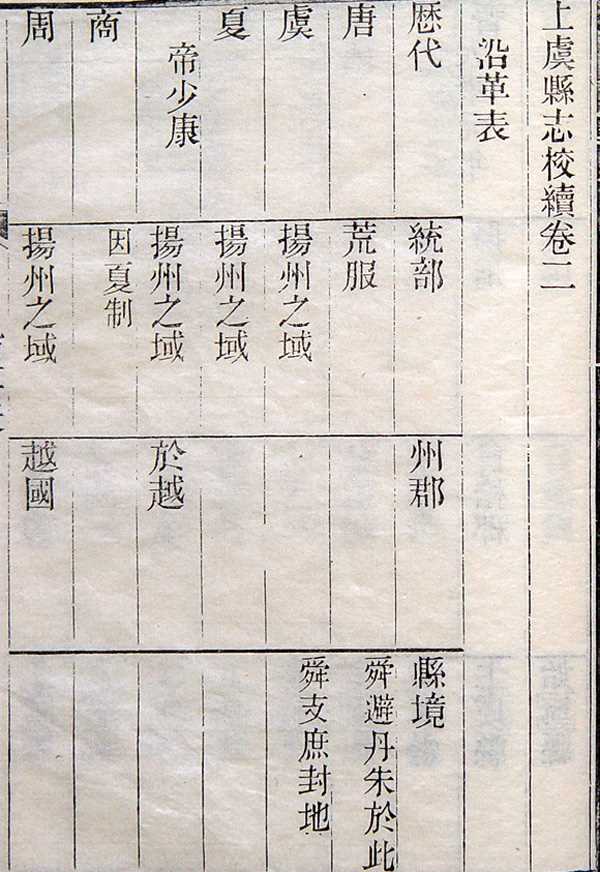 上虞縣志校續卷二
沿革表
歷代
統部
州郡
縣境
唐
荒服
舜避丹朱於此
虞
揚州之域
舜支庶封地
夏
揚州之域
帝少康
揚州之域
於越
商
因夏制
周
揚州之域
越國